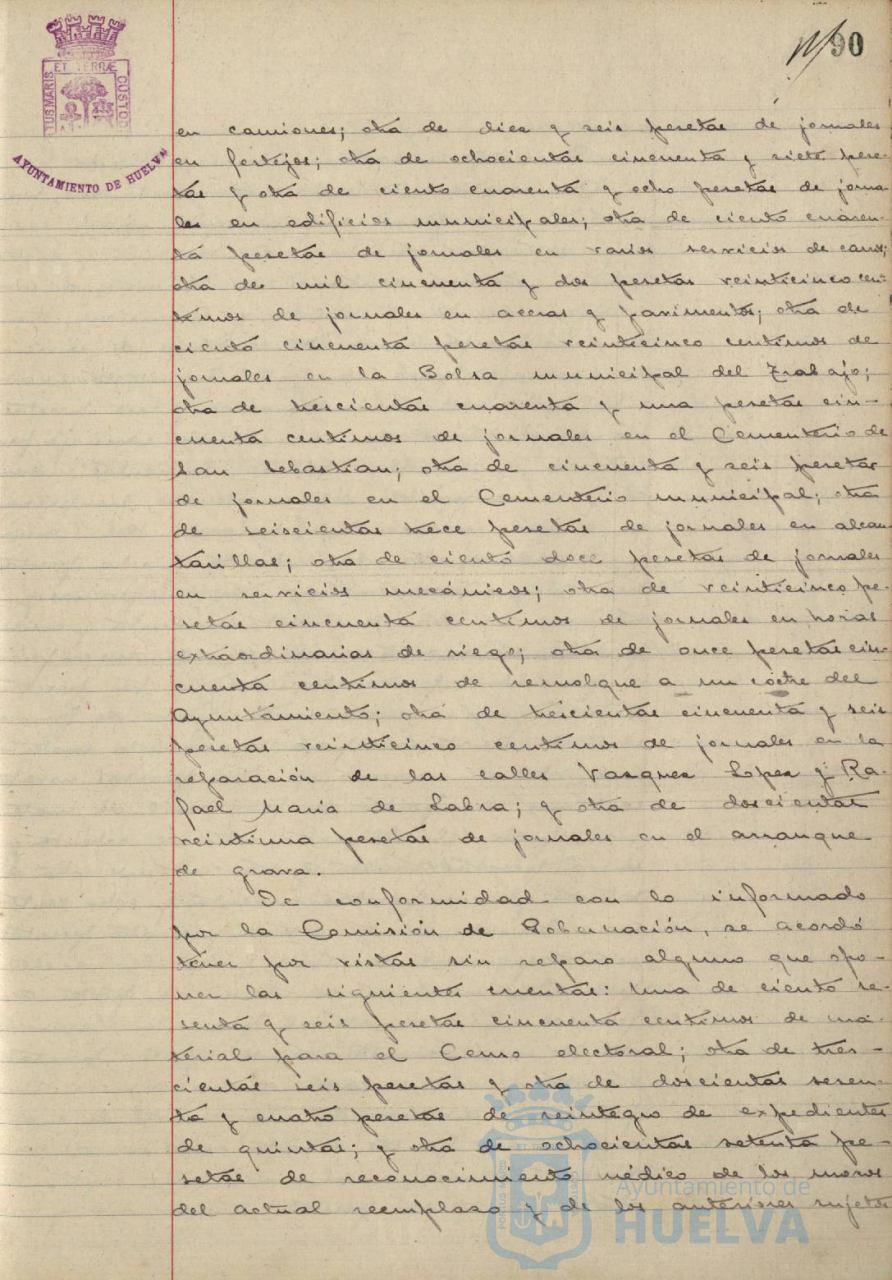 90
ET TERRÆ
TUS MARIS
CUSTOD
AYUNTAMIENTO DE HUELVA
en camiones; otra de diez y seis pesetas de jornales
en festejos; otra de ochocientas cincuenta y siete pese-
tas y otra de ciento cuarenta y ocho pesetas de jorna-
les en edificios municipales; otra de ciento cuaren-
ta pesetas de jornales en varios servicios de carros;
otra de mil cincuenta y dos pesetas veinticinco cen-
timos de jornales en aceras y pavimentos; otra de
ciento cincuenta pesetas veinticinco centimos de
jornales en la Bolsa municipal del Trabajo;
otra de trescientas cuarenta y una pesetas cin-
cuenta centimos de jornales en el Cementerio de
San Sebastian; otra de cincuenta y seis pesetas
de jornales en el Cementerio municipal; otra
de seiscientas trece pesetas de jornales en alcan-
tarillas; otra de ciento doce pesetas de jornales
en servicios mecánicos; otra de veinticinco pe-
setas cincuenta centimos de jornales en horas
extraordinarias de riego; otra de once pesetas cin-
cuenta centimos de remolque a un coche del
Ayuntamiento; otra de trescientas cincuenta y seis
pesetas veinticinco centimos de jornales en la
reparación de las calles Vazquez Lopez y Ra-
fael Maria de Labra; y otra de doscientas
veintiuna pesetas de jornales en el arranque
de grava.
De conformidad con lo informado
por la Comisión de Gobernación, se acordó
tener por vistas sin reparo alguno que opo-
ner las siguientes cuentas: Una de ciento se-
senta y seis pesetas cincuenta centimos de ma-
terial para el Censo electoral; otra de tres-
cientas seis pesetas y otra de doscientas seten-
ta y cuatro pesetas de reintegro de expedientes
de quintas; y otra de ochocientas setenta pe-
setas de reconocimiento médico de los mozos
del actual reemplazo y de los anteriores sujetos
Ayuntamiento de
HUELVA